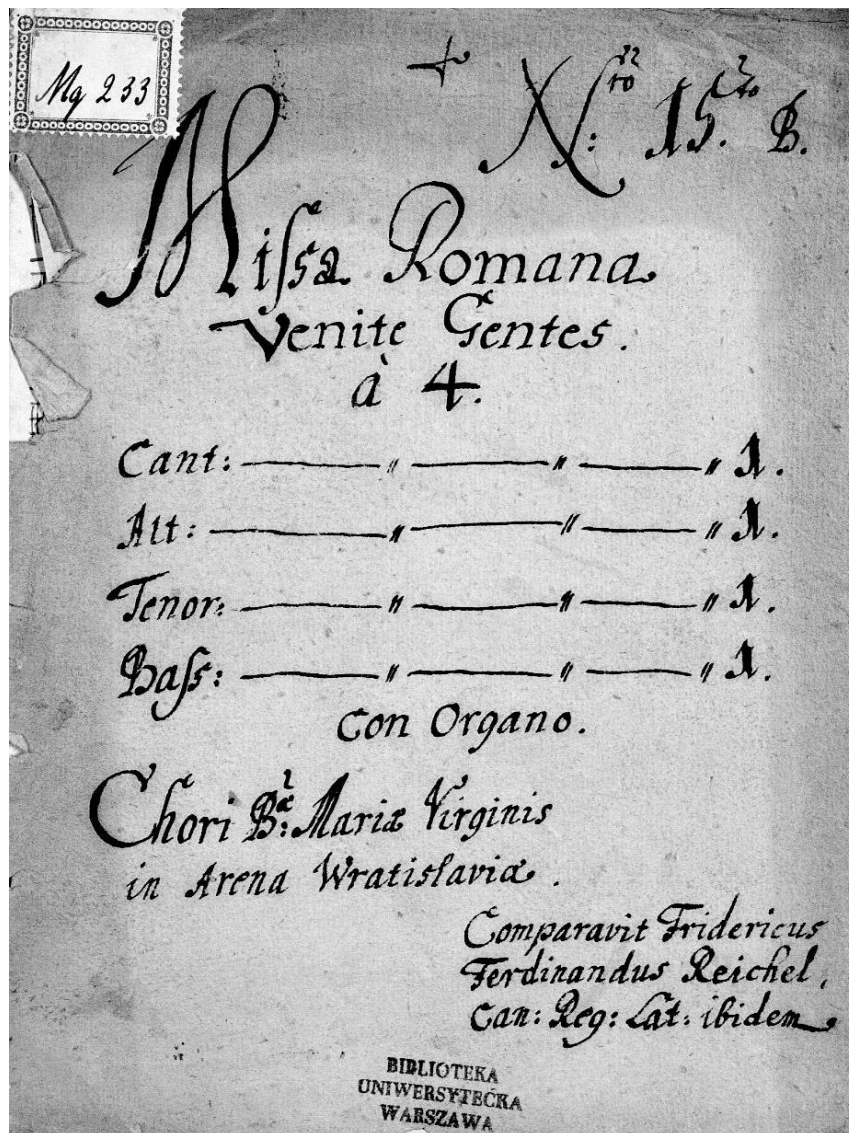 Mq 233
N:ro 15.to B.
Missa Romana
Venite Gentes.
à 4.
Cant: 1.
Alt: 1.
Tenor: 1.
Bass: 1.
Con Organo.
Chori B:æ Mariæ Virginis
in Arena Wratislaviæ.
Comparavit Fridericus
Ferdinandus Reichel,
Can: Reg: Lat: ibidem
BIBLIOTEKA
UNIWERSYTECKA
WARSZAWA